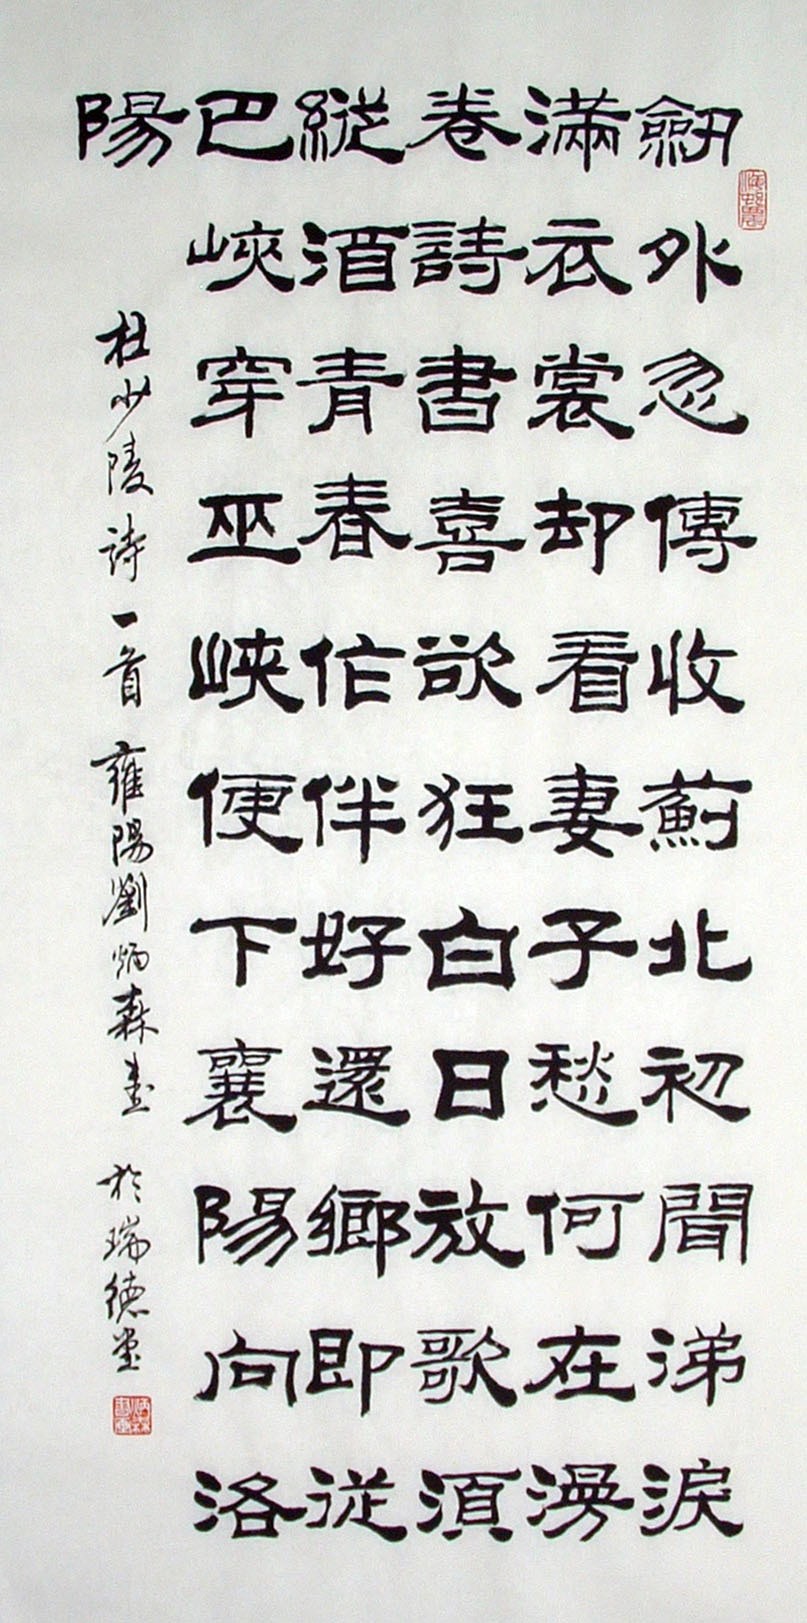 劒外忽傳收薊北初聞涕淚
滿衣裳却看妻子愁何在漫
卷詩書喜欲狂白日放歌須
縱酒青春作伴好還鄉即從
巴峽穿巫峽便下襄陽向洛
陽
杜少陵詩一首 雍陽劉炳森書 於瑞德堂